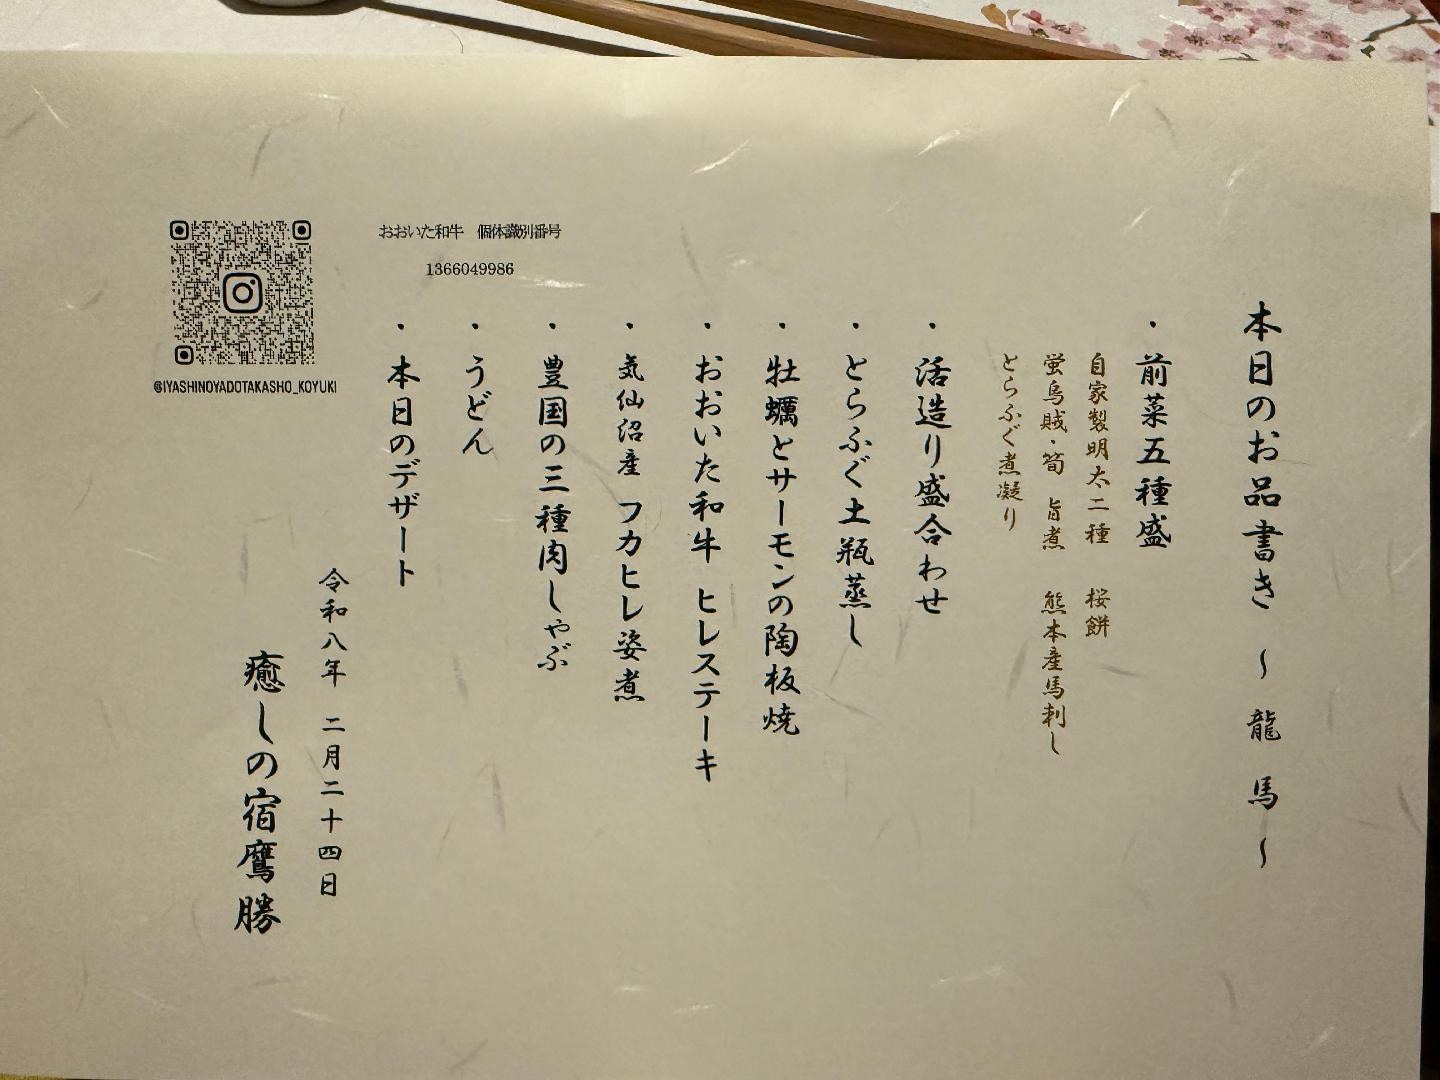 本日のお品書き 〜 龍馬 〜
・前菜五種盛
自家製明太二種 桜餅
蛍烏賊・筍 旨煮 熊本産馬刺し
とらふぐ煮凝り
・活造り盛合わせ
・とらふぐ土瓶蒸し
・牡蠣とサーモンの陶板焼
・おおいた和牛 ヒレステーキ
・気仙沼産 フカヒレ姿煮
・豊国の三種肉しゃぶ
・うどん
・本日のデザート
おおいた和牛 個体識別番号
1366049986
令和八年 二月二十四日
癒しの宿鷹勝
@IYASHINOYADOTAKASHO_KOYUKI